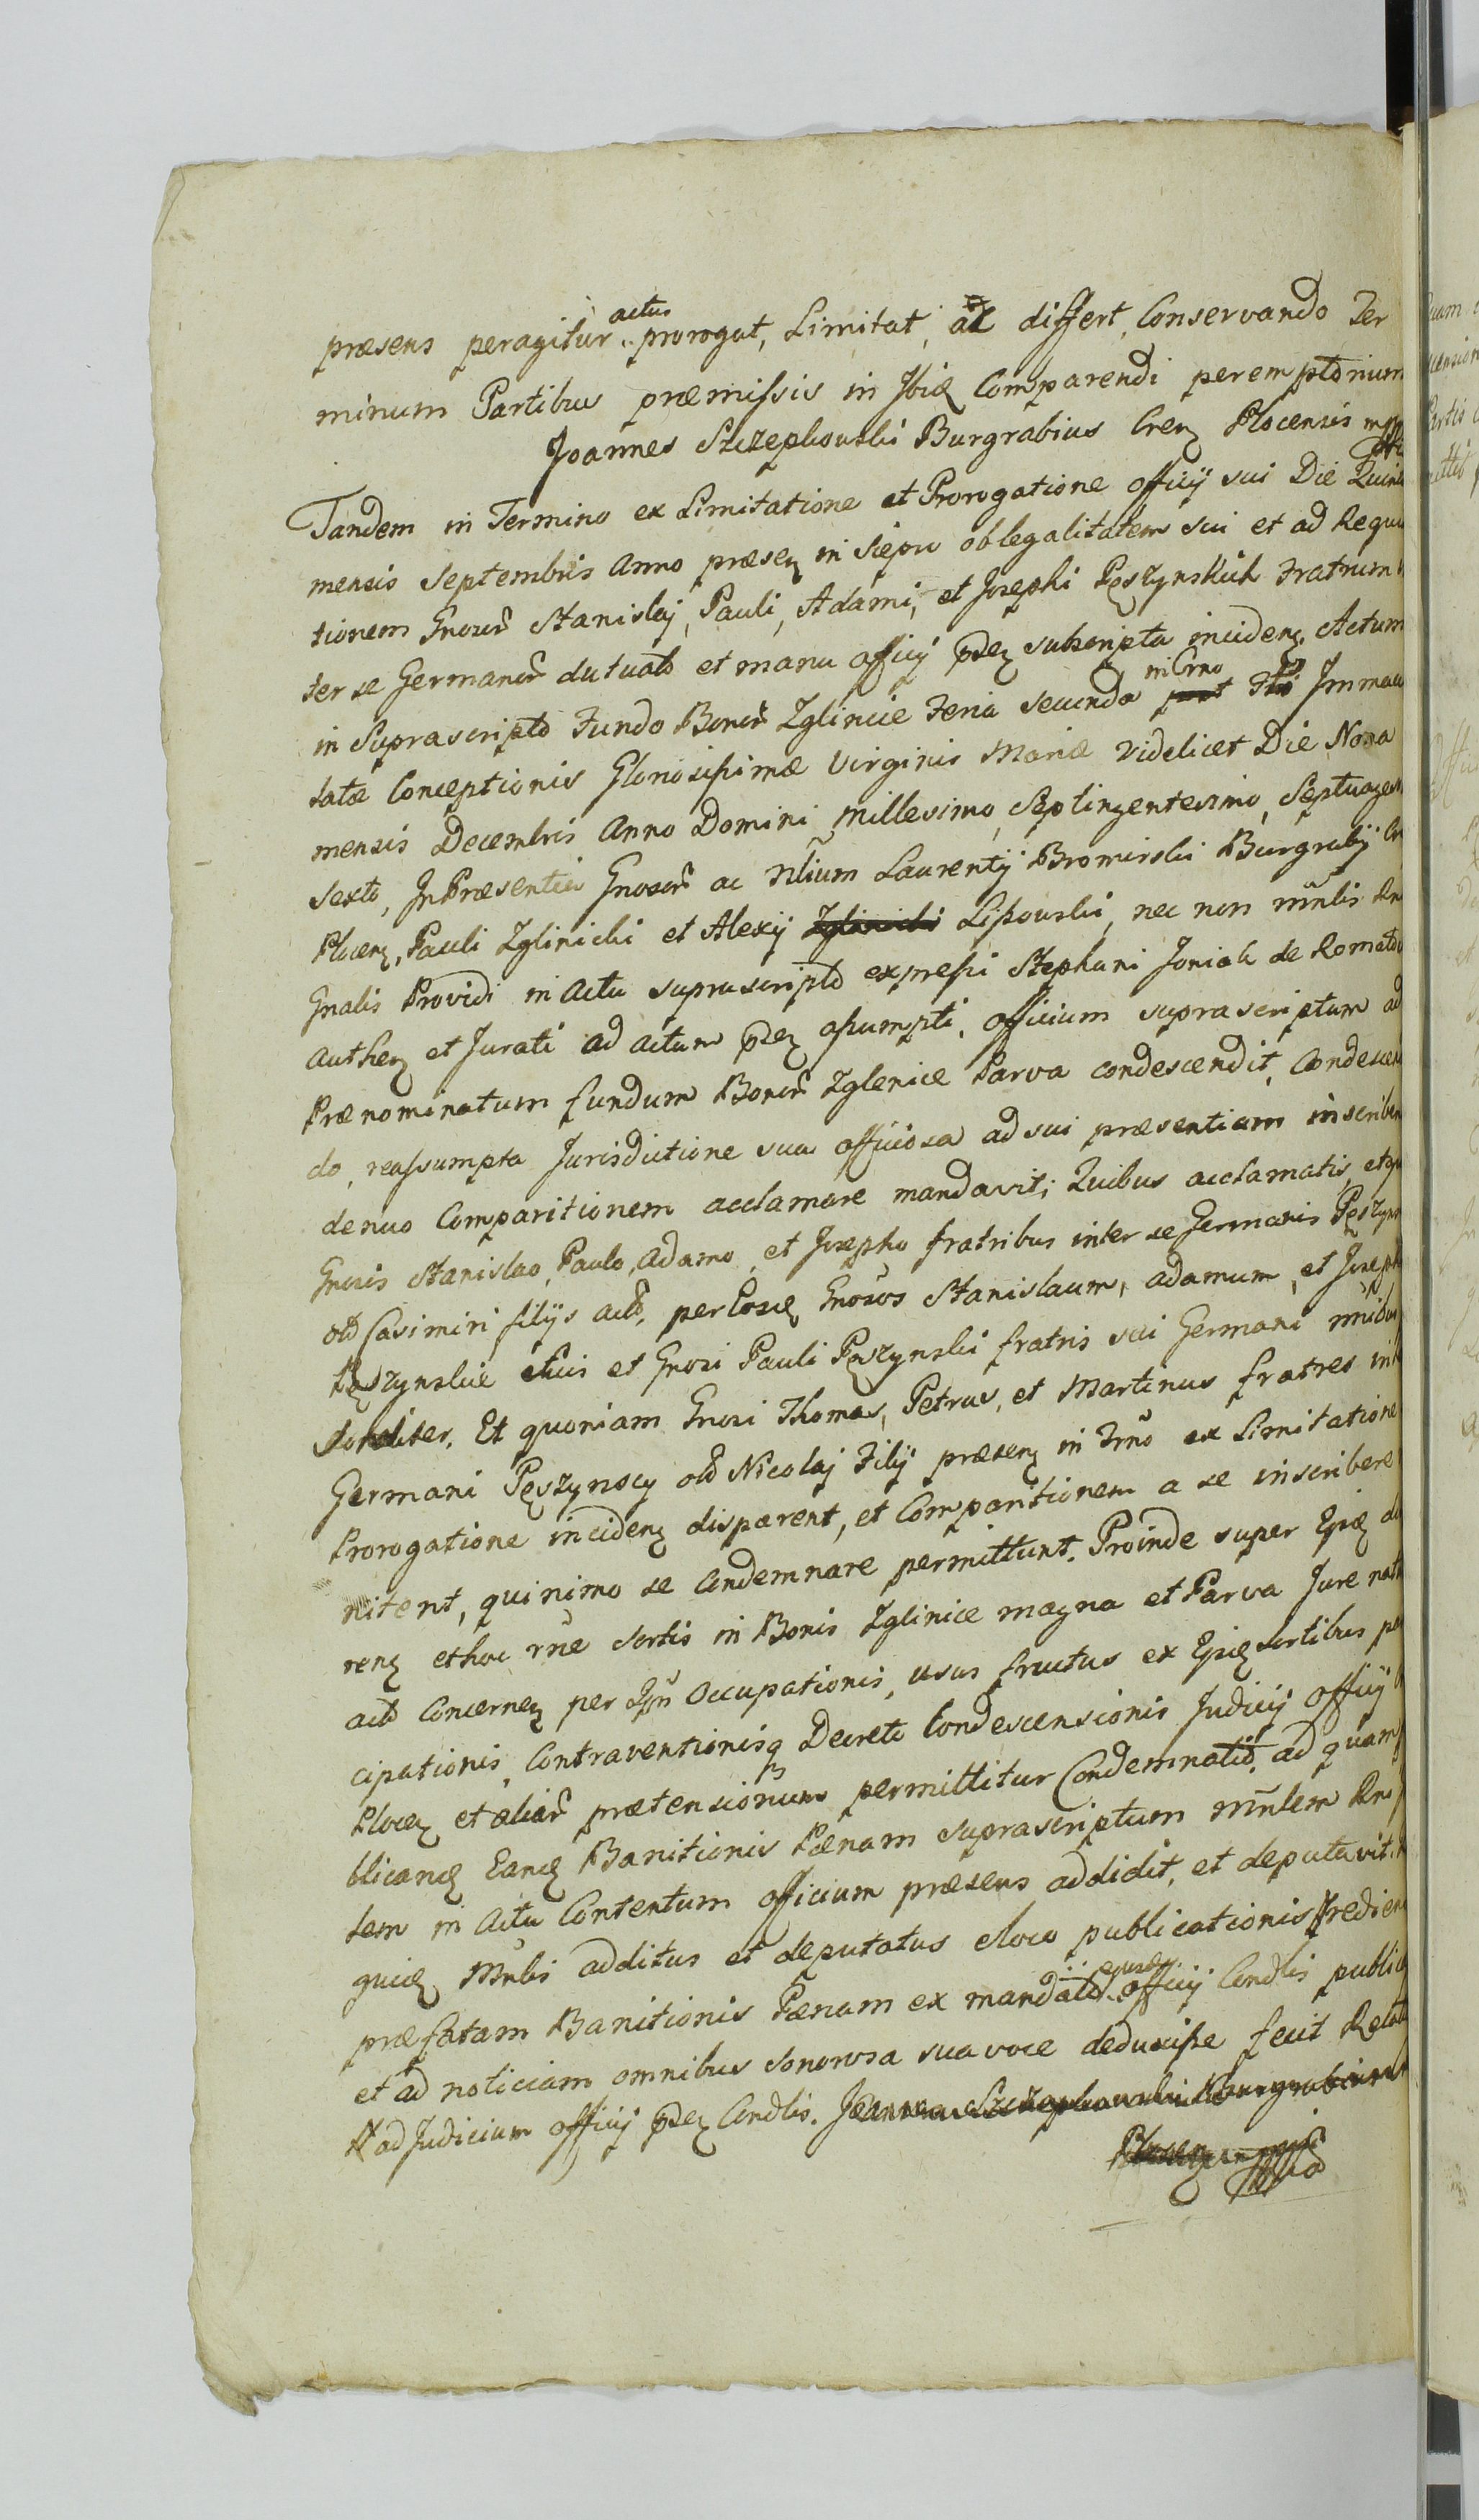 præsens peragitur actus prorogat, Limitat, ac differt, Conservando Ter
minum Partibus præmissis in Ibiq Comparendi peremptorium
Joannes Szczepkowski Burgrabius Cren Plocensis mpp
Tandem in Termino ex Limitatione et Prorogatione officij sui Die Quinta
mensis Septembris Anno præsen in Sierpc ob legalitatem sui et ad Requi
tionem Gnosor Stanislaj, Pauli, Adami, et Josephi Pęszynskich Fratrum
ter se Germanor dutuato et manu officij pden subscripta inciden. Actum
in Suprascripto Fundo Bonor Zglinice Feria secunda in Crno Fto Immacu
latæ Conceptionis Gloriosissimæ Virginis Mariæ videlicet Die Nona
mensis Decembris Anno Domini millesimo, Septingentesimo, Septuages
sexto, In Præsentia Gnosor ac Nlium Laurentij Bromirski Burgrabij Cr
Plocen, Pauli Zglinicki et Alexij Zglinicki Lipowski, nec non mnlis Rn
Gnalis Providi in Actu suprascripto expressi Stephani Joniak de Romato
Authen et Jurati ad actum pden assumpti, officium suprascriptum ad
Prænominatum fundum Bonor Zglenice Parva condescendit, Condescen
do, reassumpta Jurisdictione sua officiosa ad sui præsentiam inscriben
denuo Comparitionem acclamare mandavit; Quibus acclamatis, et
Gnosis Stanislao, Paulo, Adamo, et Josepho fratribus inter se Germanis Pęszyns
olb Casimiri filijs acto, per Gnosos Stanislaum, Adamum, et Joseph
Pęszynskie suis et Gnosi Pauli Pęszynski fratris sui Germani nnibus
Et quoniam Gnosi Thomas, Petrus, et Martinus fratres int
Germani Pęszynscy olb Nicolaj Filij præsen in Trno ex Limitatione
Prorogatione inciden disparent, et Comparitionem a se inscribere
nitent, quinimo se Condemnare permittunt. Proinde super Eisq do
ren et hoc rne sortis in Bonis Zglinice magna et Parva Jure nat
acto Concernen per Ipsos Occupationis, usus fructus ex Eisq sortibus per
cipationis, Contraventionisq Decreti Condescensionis Judicij officij
Plocen et alior prætensionum permittitur Condemnatio, ad quam
blicanq Eanq Banitionis Pœnam suprascriptum mnlem Rn
lem in Actu Contentum officium præsens addidit, et deputavit.
quiq Mnlis additus et deputatus e loco publicationis redien
præfatam Banitionis Pœnam ex mandato ejusdem officij Condlis public
et ad noticiam omnibus sonorosa sua voce deduxisse fecit Relat
ad Judicium officij pden Condlis. Joannes Szczepkowski Burgrabius
Plocen mpp